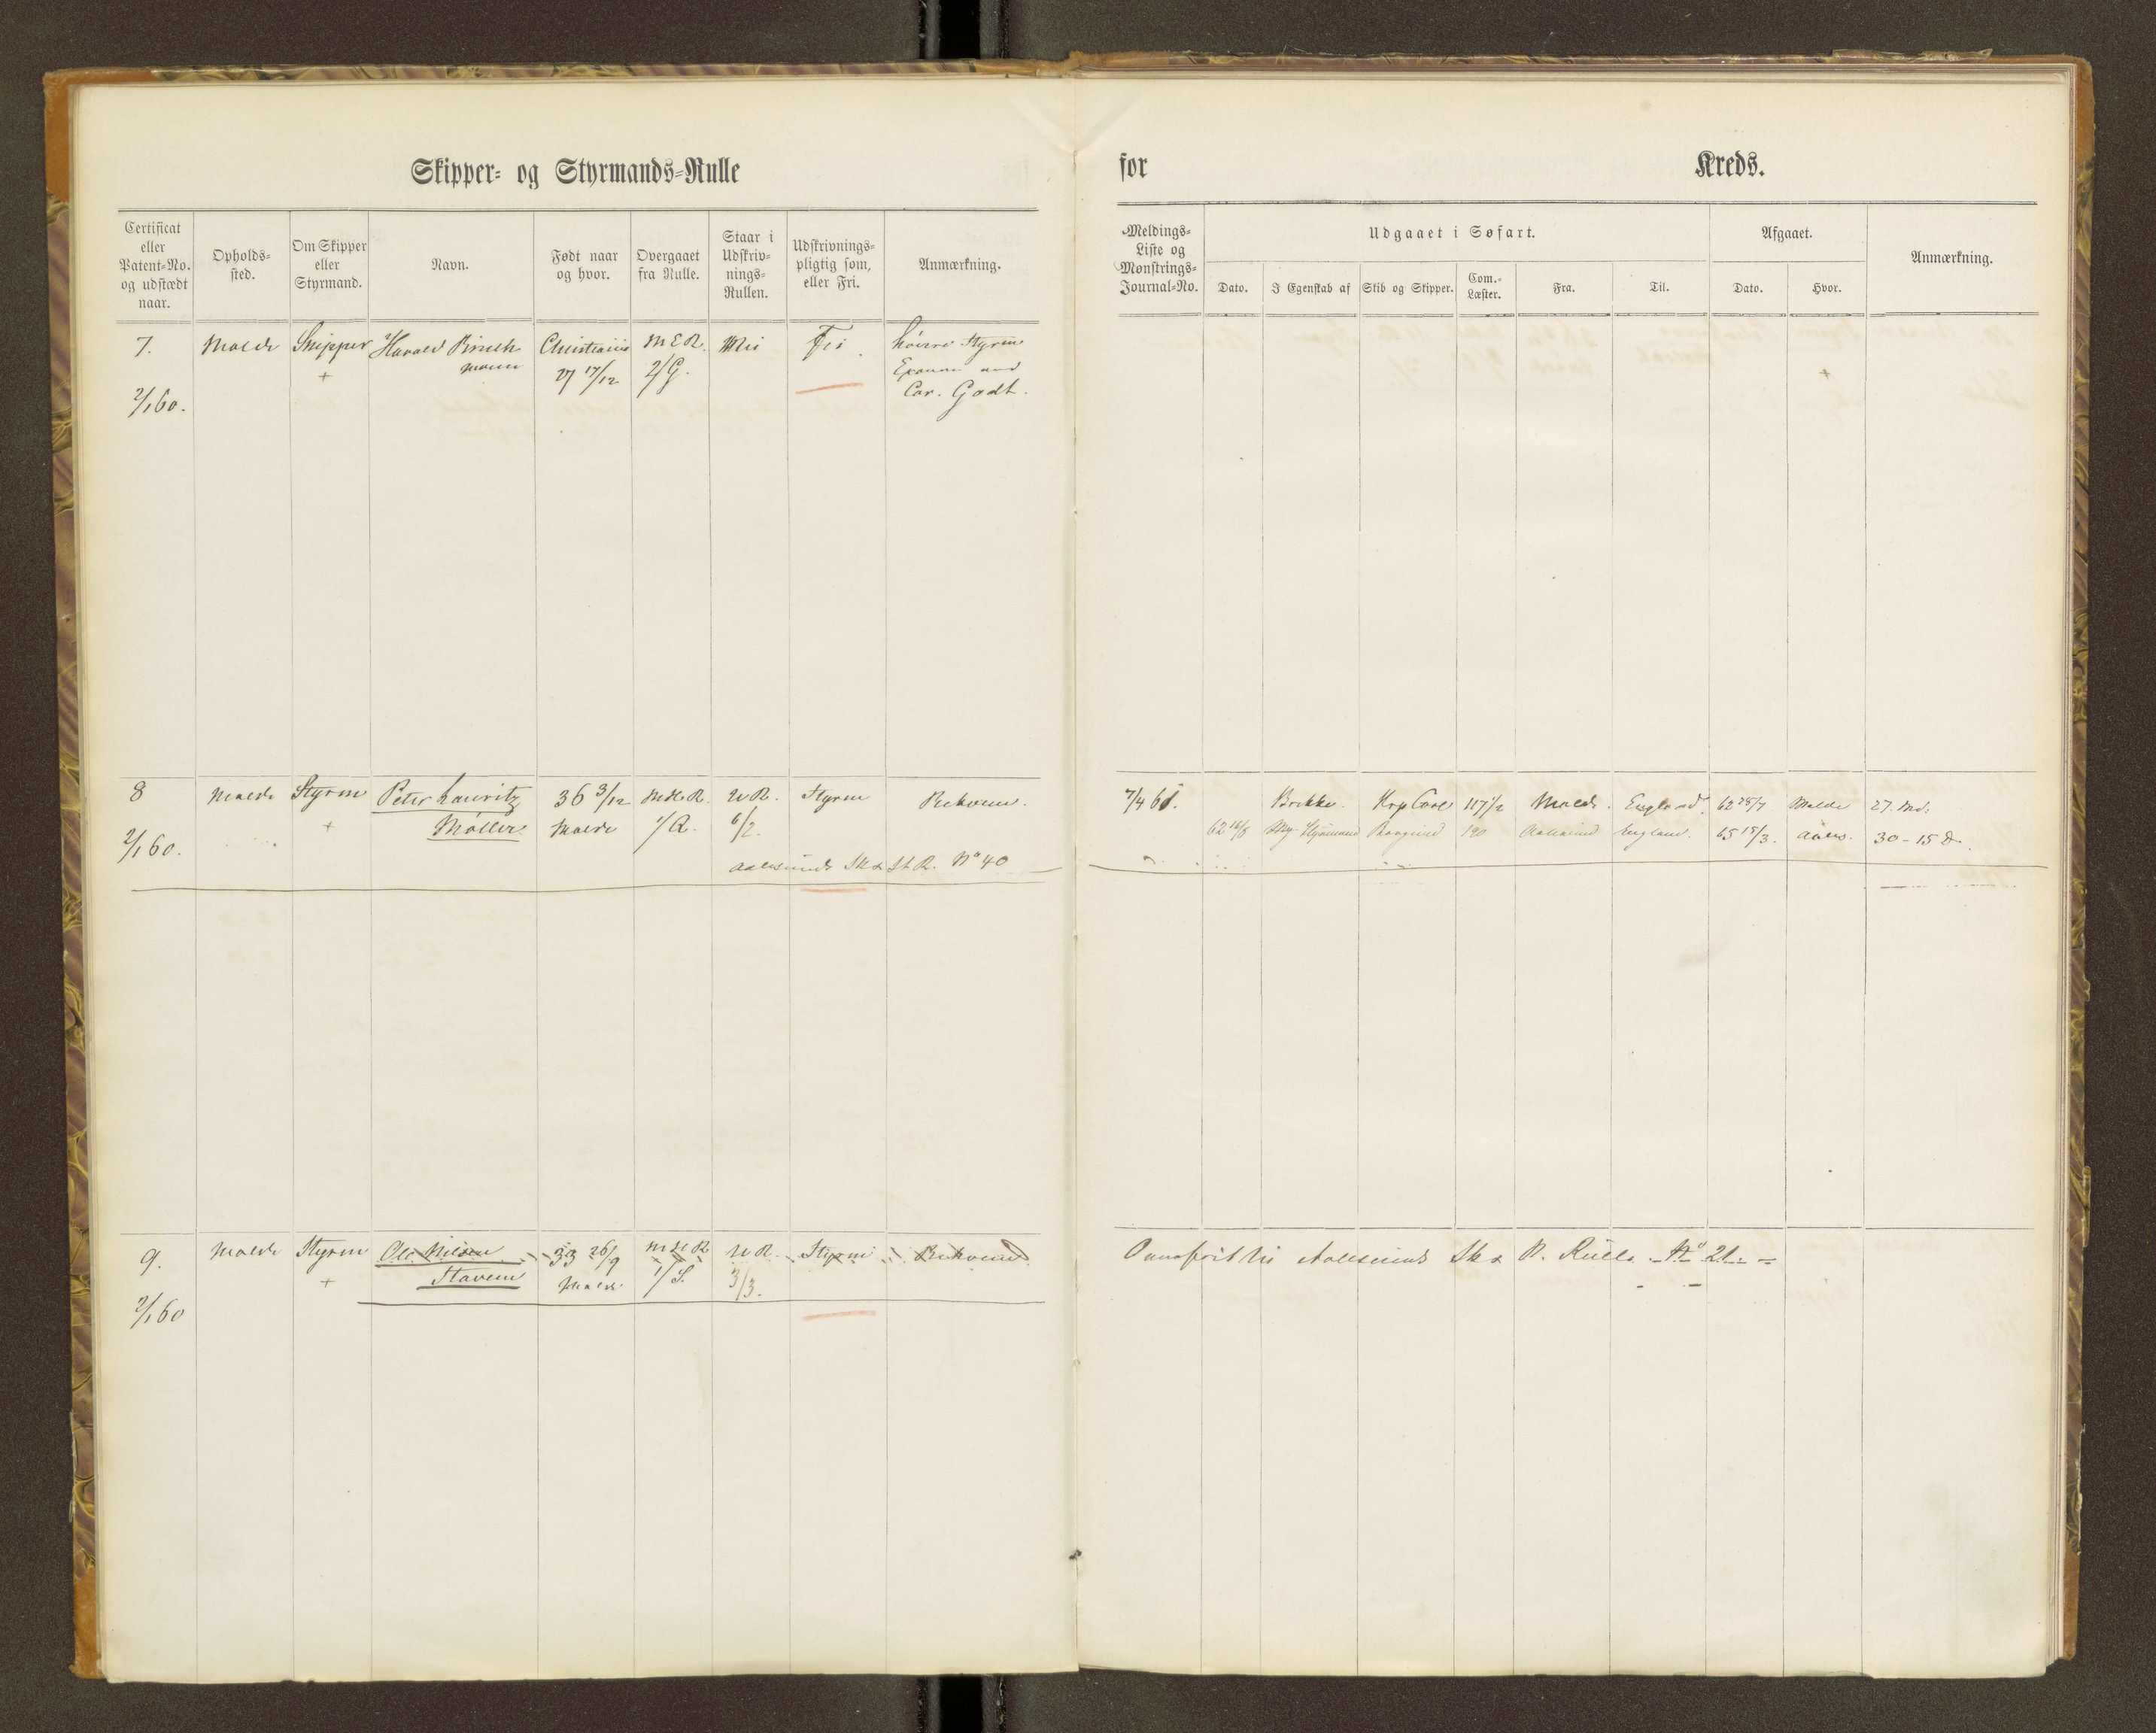 Skipper- og Styrmands-Rulle
for Kreds.
Certificat eller Patent-No. og udstædt naar.
Opholds-sted.
Om Skipper eller Styrmand.
Navn.
Født naar og hvor.
Overgaaet fra Rulle.
Staar i Udskriv-nings-Rullen.
Udskrivnings-pligtig som, eller Fri.
Anmærkning.
Meldings-Liste og Mønstrings-Journal-No.
Udgaaet i Søfart.
Dato.
I Egenskab af
Skib og Skipper.
Com.-Læster.
Fra.
Til.
Afgaaet.
Dato.
Hvor.
Anmærkning.
7. Molde Skipper Harald Christiania M E R. Fri høiere Styrm
+ 27 17/12 2/G. Examen
2/1 60. Car. Godt.
8 Molde Styrm Peter Lauritz 36 3/12 U R. Styrm Bekvem.
+ Møller Molde 1/R. 6/2.
2/1 60.
Aalesunds Sk & St R. No 40
7/4 61. Brekke. 117 1/2 Molde. England. 62 28/7 Molde 27. Md.
62 16/8 190 Aalesund England. 65 15/3. Aales. 30 - 15 D.
9. Molde Styrm Ole Nilsen 33 26/9 U R. Styrm Bekvem
+ Stavem Molde 1/S. 3/3.
2/1 60
Overført til Aalesunds Sk & Rulle No 21.